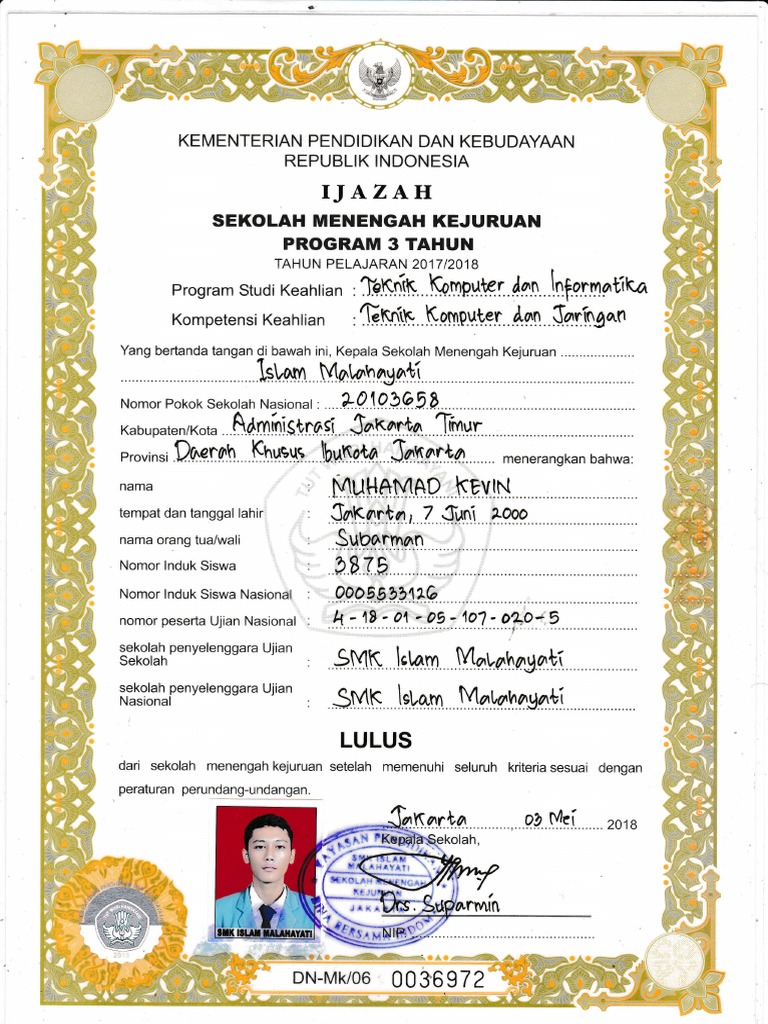 KEMENTERIAN PENDIDIKAN DAN KEBUDAYAAN
REPUBLIK INDONESIA
IJAZAH
SEKOLAH MENENGAH KEJURUAN
PROGRAM 3 TAHUN
TAHUN PELAJARAN 2017/2018
Program Studi Keahlian : Teknik Komputer dan Informatika
Kompetensi Keahlian : Teknik Komputer dan Jaringan
Yang bertanda tangan di bawah ini, Kepala Sekolah Menengah Kejuruan
Islam Malahayati
Nomor Pokok Sekolah Nasional : 20103658
Kabupaten/Kota Administrasi Jakarta Timur
Provinsi Daerah Khusus Ibukota Jakarta menerangkan bahwa:
nama : MUHAMAD KEVIN
tempat dan tanggal lahir : Jakarta, 7 Juni 2000
nama orang tua/wali : Subarman
Nomor Induk Siswa : 3875
Nomor Induk Siswa Nasional : 0005533126
nomor peserta Ujian Nasional : 4-18-01-05-107-020-5
sekolah penyelenggara Ujian
Sekolah : SMK Islam Malahayati
sekolah penyelenggara Ujian
Nasional : SMK Islam Malahayati
LULUS
dari sekolah menengah kejuruan setelah memenuhi seluruh kriteria sesuai dengan
peraturan perundang-undangan.
Jakarta, 03 Mei 2018
Kepala Sekolah,
SMK ISLAM
MALAHAYATI
SEKOLAH MENENGAH
KEJURUAN
JAKARTA
Drs. Suparmin
NIP.
SMK ISLAM MALAHAYATI
TUT WURI HANDAYANI
2018
DN-Mk/06 0036972